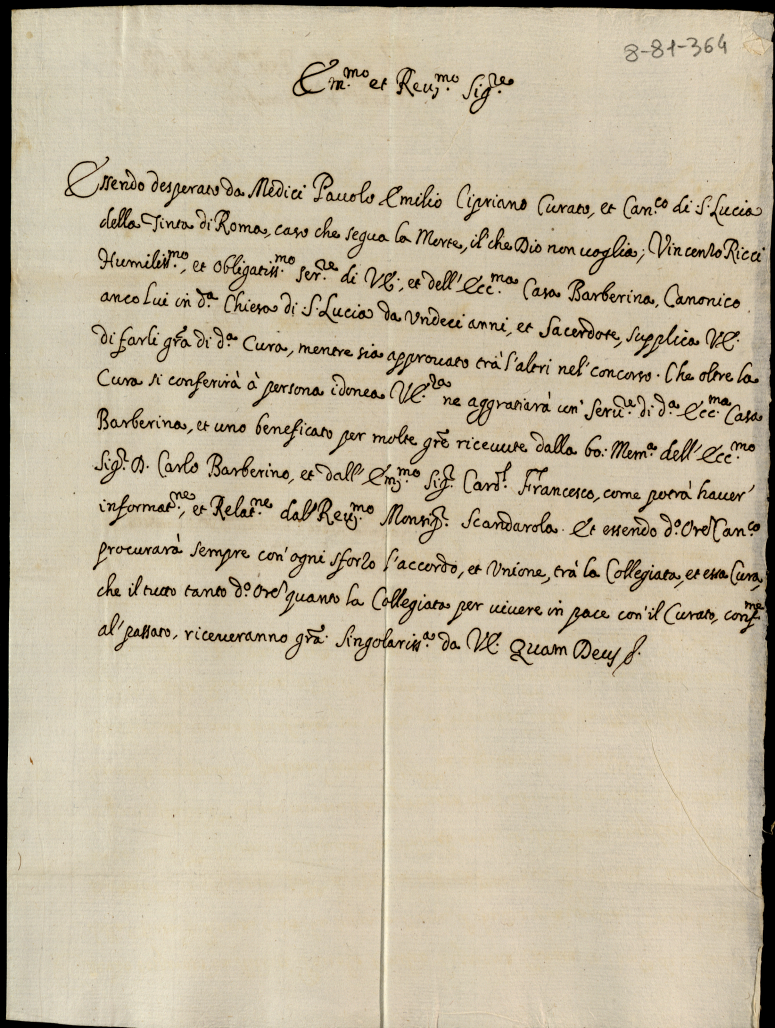 8-81-364
Em.mo et Reu.mo Sig.re
Essendo desperato da Medici Pauolo Emilio Cipriano Curato, et Can.co di S. Lucia
della Tinta di Roma, caso che segua la Morte, il che Dio non uoglia; Vincenzo Ricci
Humiliss.mo, et obligatiss.mo ser.re di VE., et dell' Ecc.ma Casa Barberina, Canonico
anco lui in d.a Chiesa di S. Lucia da Vndeci anni, et Sacerdote, supplica VE.
di farli gra di d.a Cura, mentre sia approuato trà l'altri nel' concorso. Che oltre la
Cura si conferirà à persona idonea VE.za ne aggratiarà un' seru.re di d.a Ecc.ma Casa
Barberina, et uno beneficato per molte gre riceuute dalla bo: Mem.a dell' Ecc.mo
Sig.r D. Carlo Barberino, et dall' Em.mo Sig.r Card.l Francesco, come potrà hauer'
informat.ne, et Relat.ne dal' Reu.mo Monsig.r Scandarola. Et essendo d.o Ore Can.co
procurarà sempre con' ogni sforzo l'accordo, et Vnione, trà la Collegiata, et essa Cura,
che il tutto tanto d.o Ore quanto la Collegiata per uiuere in pace con' il Curato, conf.me
al' passato, riceueranno gra. singolariss.a da VE. Quam Deus &.